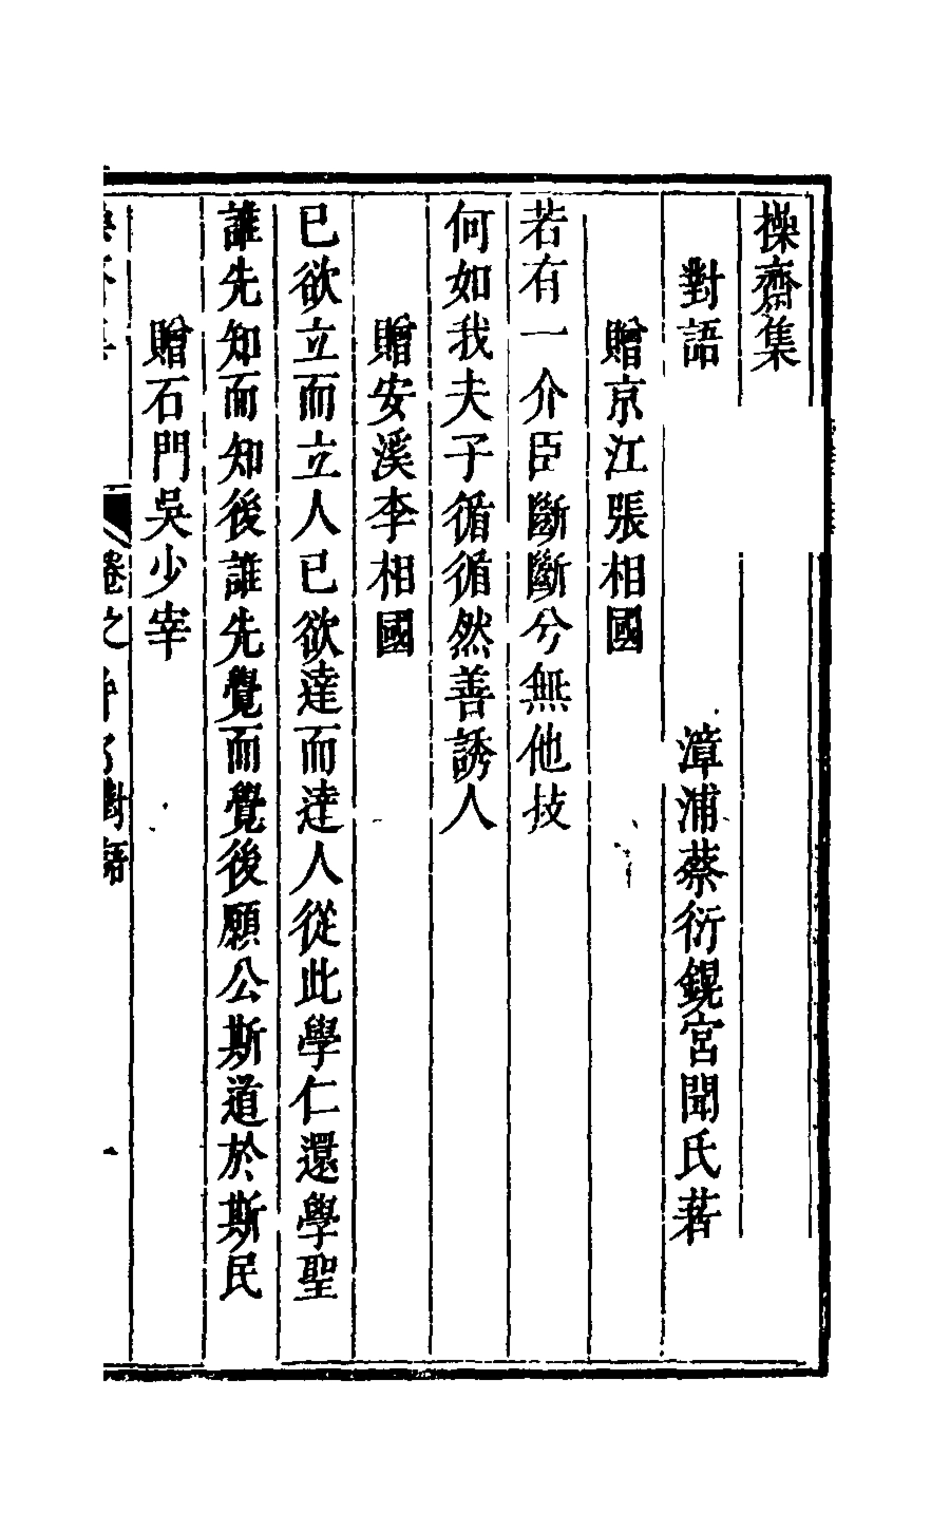 操齋集
對語
漳浦蔡衍鎤宮聞氏著
贈京江張相國
若有一介臣斷斷兮無他技
何如我夫子循循然善誘人
贈安溪李相國
已欲立而立人已欲達而達人從此學仁還學聖
誰先知而知後誰先覺而覺後願公斯道於斯民
贈石門吳少宰
卷之